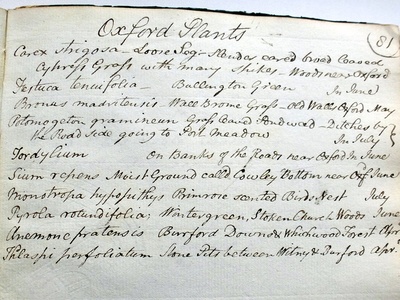 Oxford Plants
81
Carex strigosa - Loose Seg: Slender eared broad leaved
Cypress Grass with many Spikes - Woods near Oxford
Festuca tenuifolia - Bullington Green In June
Bromus madritensis - Wall Brome Grass - Old Walls Oxford May
Potomogeton gramineum Grass leaved Pondweed - Ditches by
the Road Side going to Port meadow In July
Tordylium on Banks of the Roads near Oxford In June
Sium repens Moist Ground called Cowley Bottom near Oxf: June
Monotropa hypopithys Primrose scented Birds Nest July
Pyrola rotundifolia, Wintergreen, Stoken Church Woods June
Anemone pratensis Burford Downs & Whichwood Forest Apr:
Thlaspi perfoliatum Stone Pits between Witny & Burford Apr: